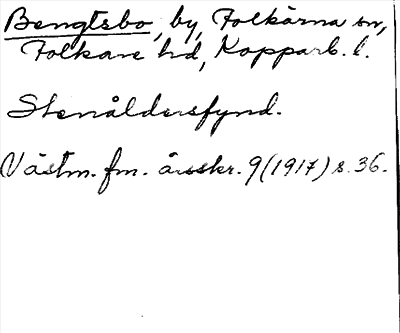 Bengtsbo, by, Folkärna sn,
Folkare hd, Kopparb. l.
Stenåldersfynd.
Västm. fm. årsskr. 9 (1917) s. 36.